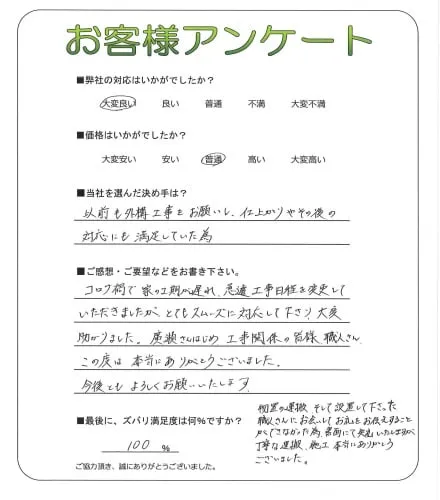 お客様アンケート
■弊社の対応はいかがでしたか？
大変良い 良い 普通 不満 大変不満
■価格はいかがでしたか？
大変安い 安い 普通 高い 大変高い
■当社を選んだ決め手は？
以前も外構工事をお願いし、仕上がりやその後の
対応にも満足していた為
■ご感想・ご要望などをお書き下さい。
コロナ禍で家の工期が遅れ、急遽工事日程を変更して
いただきましたが、とてもスムーズに対応して下さり、大変
助かりました。廣瀬さんはじめ工事関係の皆様、職人さん、
この度は本当にありがとうございました。
今後ともよろしくお願いいたします。
■最後に、ズバリ満足度は何％ですか？
100 ％
ご協力頂き、誠にありがとうございました。
物置の運搬、そして設置して下さった
職人さんにお会いしてお礼をお伝えすること
ができなかった為、書面にて失礼いたしますが
丁寧な運搬、施工本当にありがとう
ございました。